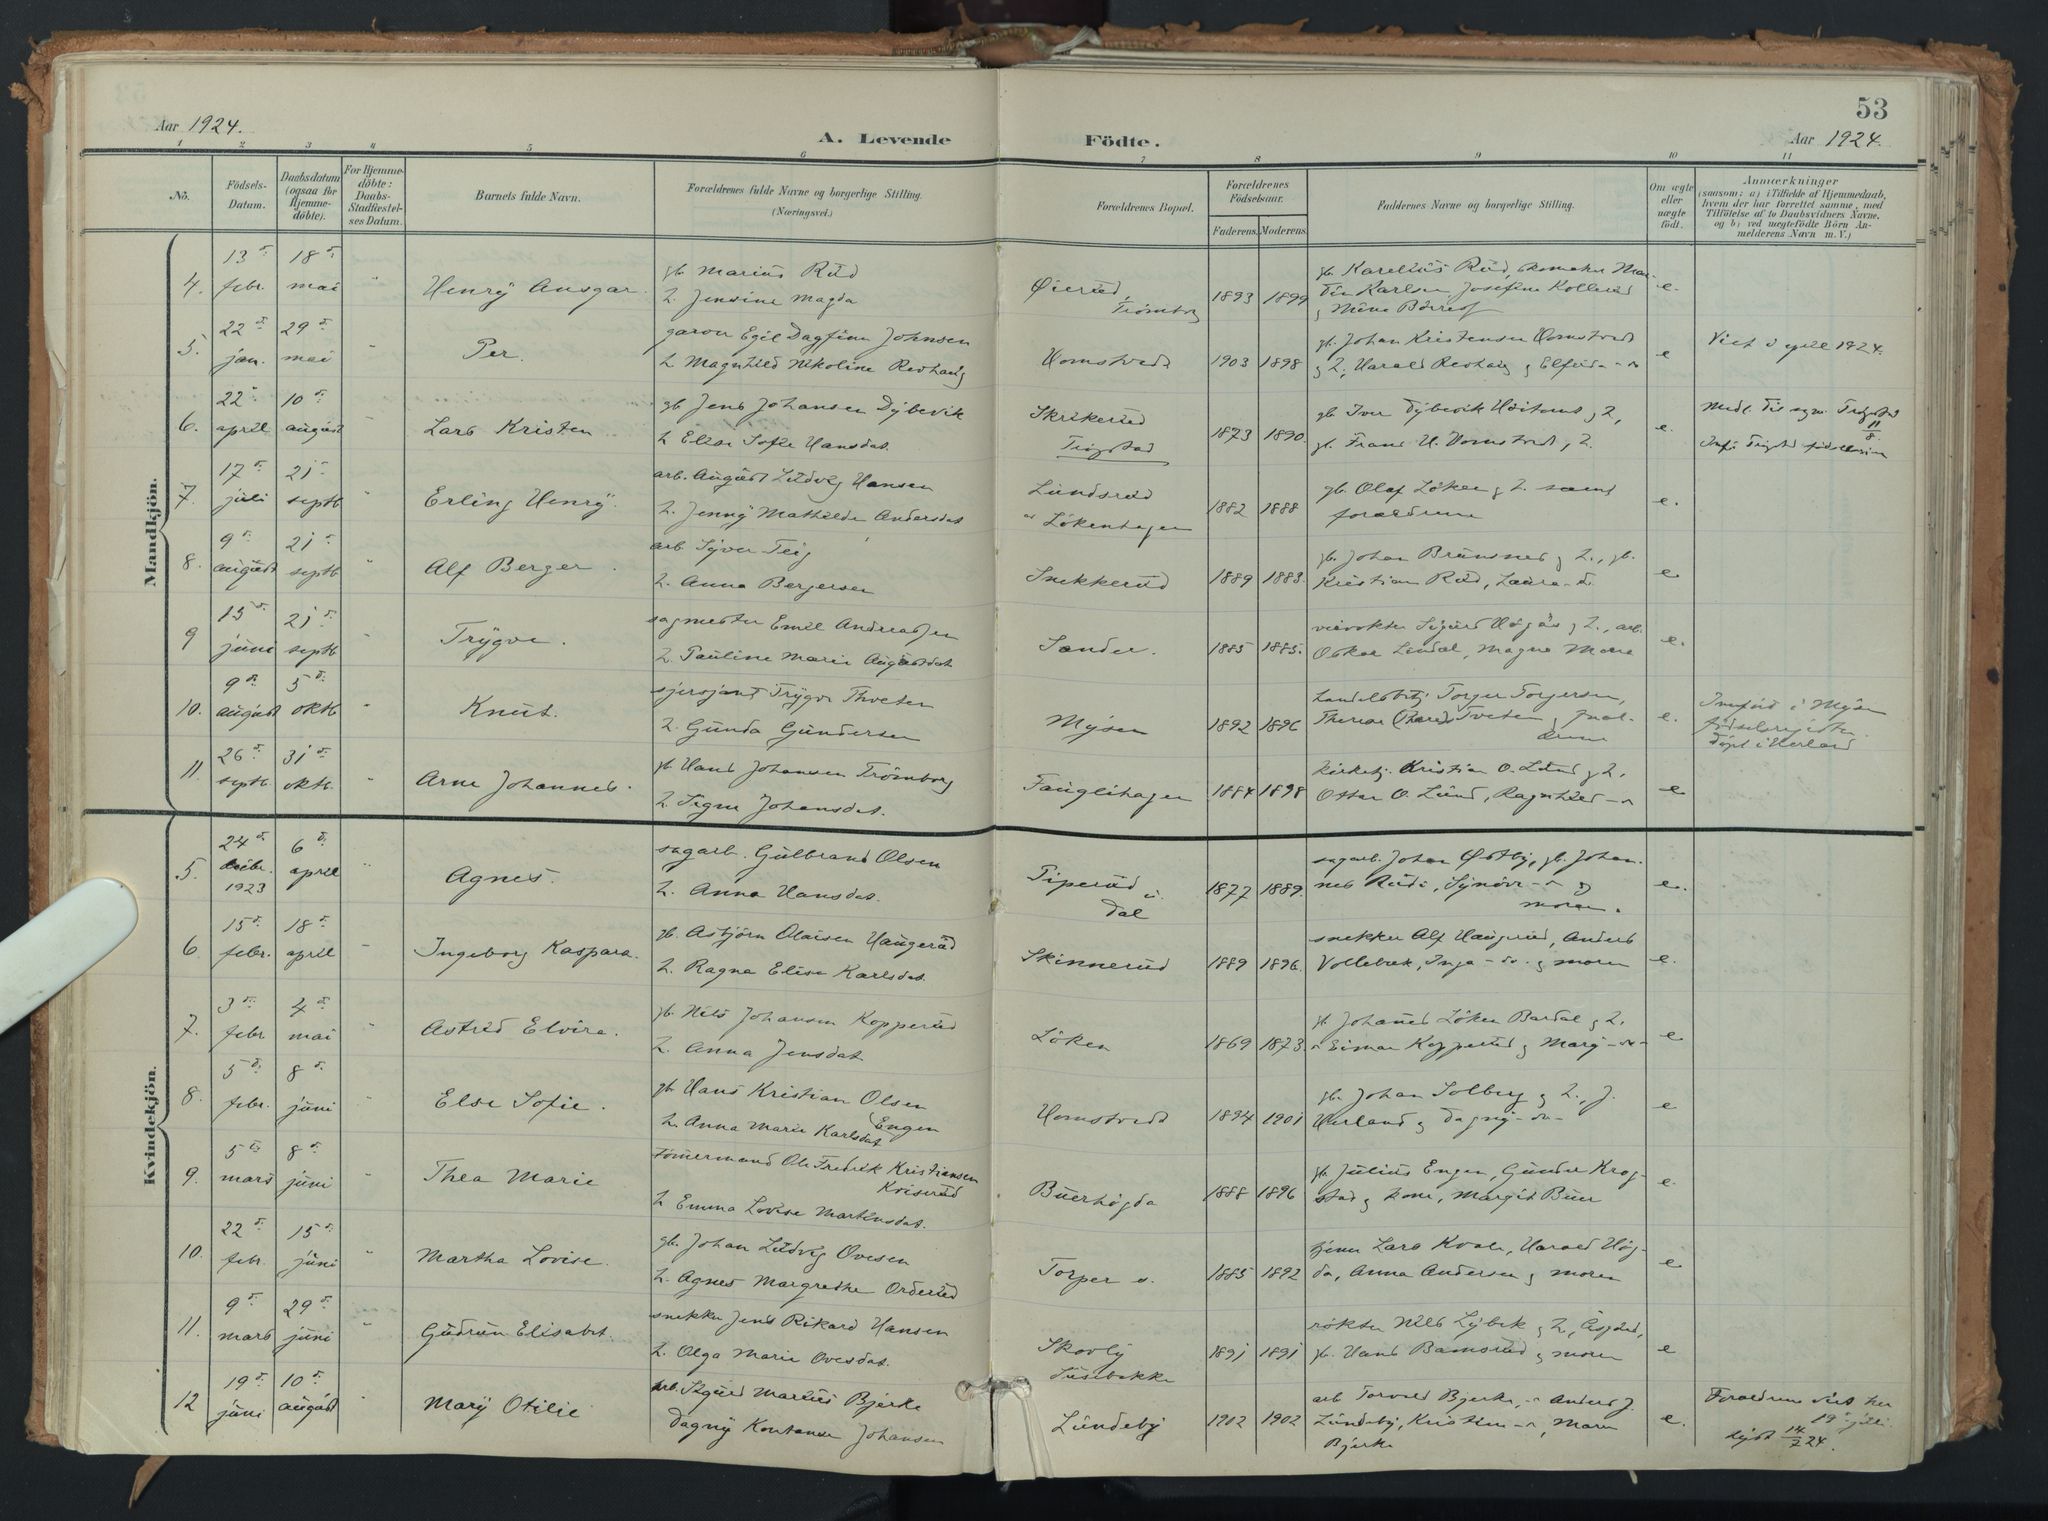 53
Aar 1924.
A. Levende Födte.
Aar 1924.
1 2 3 4 5 6 7 8 9 10 11
No.
Födsels-Datum.
Daabsdatum (ogsaa for Hjemme-döbte).
For Hjemme-döbte: Daabs-Stadfæstel-ses Datum.
Barnets fulde Navn.
Forældrenes fulde Navne og borgerlige Stilling. (Næringsvei.)
Forældrenes Bopæl.
Forældrenes Födselsaar.
Faderens. Moderens.
Faddernes Navne og borgerlige Stilling.
Om ægte eller uægte födt.
Anmærkninger
(saasom: a) i Tilfælde af Hjemmedaab,
hvem der har forrettet samme, med
Tilföielse af to Daabsvidners Navne.
og b) ved uægtefödte Börn An-
melderens Navn m. V.)
Mandkjön.
4. 13 febr. 18 mai " Henry Ansgar. gb. Marius Rud
2. Jensine Magda
Øierud, Trömborg 1893 1899 gb. Karelius Rud, skomaker Mar-
tin Karlsen, Josefine Kollerud
e.
5. 22 jan. 29 mai " Per. Egil Dagfinn Johnsen
2. Magnhild Nikoline Revhaug
Homstvedt 1903 1898 gb. Johan Kristensen Homstvedt
g 2, Harald Revhaug g
e Viet 1924.
6. 22 april 10 august " Lars Kristen gb. Jens Johansen Dybevik
2. Elise Sofie Hansdat.
Skrikerud
Trögstad 1873 1890. gb. Iver Dybevik g 2,
gb. Frans H. Homstvedt g 2.
e. 11/8.
7. 17 juli 21 septb " Erling Henry. arb. August Ludvig Hansen
2. Jenny Mathilde Andersdat
Lundsrud
Lökenhagen 1882 1888 gb. Olaf Löken g 2. samt
forældrene
e.
8. 9 august 21 septb " Alf Berger. arb. Syver Teig
2. Anna Bergersen
Snekkerud 1889 1883. gb. Johan Brunsnes g 2., gb.
Kristian Rud, Laura - d.
e
9 15 juni 21 septb " Trygve. sagmester Emil Andreassen
2. Pauline Marie Augustdat
Sander. 1885 1885. Sigurd Högås g 2., arb.
Oskar Lindal, Magna Moen
e.
10. 9 august 5 oktb " Knut. sjersjant Trygve Thveten
2. Gunda Gundersen
Mysen 1892 1896 Torger Torgersen,
Tveten g foræl-
drene
e. Innförd i Mysen
födselsregister.
Döpt i Herland
11. 26 septb. 31 oktb. " Arne Johannes. gb. Hans Johansen Trömborg
2. Signe Johansdat.
Fauglihagen 1884 1898 kirketj. Kristian O. Lund g 2.
Ottar O. Lund, Ragnhild
e
Kvindekjön.
5. 24 1923 6 april " Agnes. sagarb. Gulbrand Olsen
2. Anna Hansdat.
Piperud u.
Dal 1877 1889. sagarb. Johan Østby, gb. Johan-
nes Rud, Synöve g
moren.
e.
6. 15 febr. 18 april " Ingeborg Kaspara. gb. Asbjörn Olaisen Haugerud
2. Ragna Elise Karlsdat.
Skinnerud 1889 1896. snekker Alf Haugerud, Anders
Vollebæk, Inga - do. g moren
e.
7. 3 febr 4 mai " Astrid Elvira. gb. Nils Johansen Kopperud
2. Anna Jensdat
Löken 1869 1873. gb. Johannes Löken Bardal g 2.
Einar Kopperud g Mary
e
8. 5 febr. 8 juni " Else Sofie. gb. Hans Kristian Olsen
Engen
2. Anna Marie Karlsdat
Homstvedt 1894 1901 gb. Johan Solberg g 2., J.
Herland g Dagny - do -
e
9. 5 mars 8 juni " Thea Marie tömermand Ole Fredrik Kristiansen
Kriserud
2. Emma Lovise Martinsdat.
Buerhögda 1888 1896 gb. Julius Engen, Gunder Krog-
stad g kone, Margit Buer
e.
10. 22 febr. 15 juni " Martha Lovise. gb. Johan Ludvig Ovesen
2. Agnes Margrethe Orderud
Torper 1885 1892 Lars Kvale, Harald Hög-
da, Anna Andersen g moren
e
11. 9 mars 29 juni " Gudrun Elisabet. snekker Jens Rikard Hansen
2. Olga Marie Ovesdat.
Skovly
Susebakke 1891 1891 rökter Nils Lybek g 2,
gb. Hans Bamsrud g moren
e
12 19 juni 10 august " Mary Otilie arb. Sigurd Marius Bjerke
Dagny Konstanse Johansen
Lundeby 1902 1902 arb Torvald Bjerke, Anders J.
Lundeby, Kristine, Maren
Bjerke
e. Foreldrene viet her
19 juli.
lyst 14/7 24.